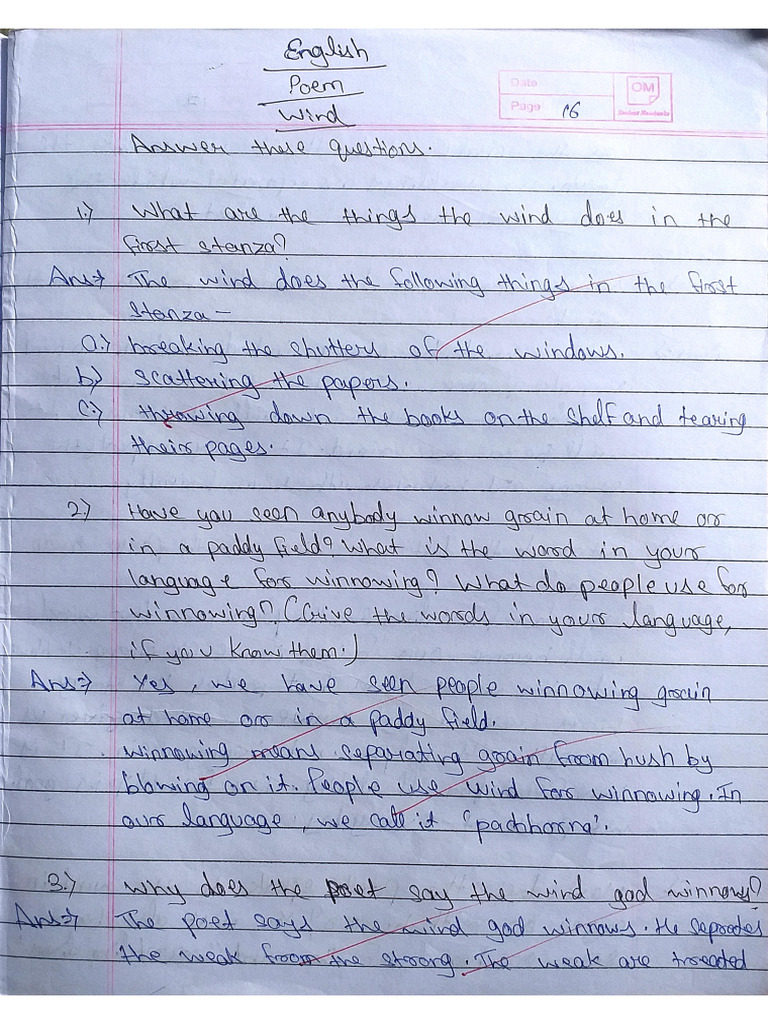 English
Poem
Wind
Date
Page 16
OM
Answer these questions.
1.) What are the things the wind does in the
first stanza?
Ans→ The wind does the following things in the first
stanza –
a.) breaking the shutters of the windows.
b.) scattering the papers.
c.) throwing down the books on the shelf and tearing
their pages.
2.) Have you seen anybody winnow grain at home or
in a paddy field? What is the word in your
language for winnowing? What do people use for
winnowing? (Give the words in your language,
if you know them.)
Ans→ Yes, we have seen people winnowing grain
at home or in a paddy field.
winnowing means separating grain from hush by
blowing on it. People use wind for winnowing. In
our language, we call it 'pachhorna'.
3.) Why does the poet say the wind god winnows?
Ans→ The poet says the wind god winnows. He seprates
the weak from the strong. The weak are treated